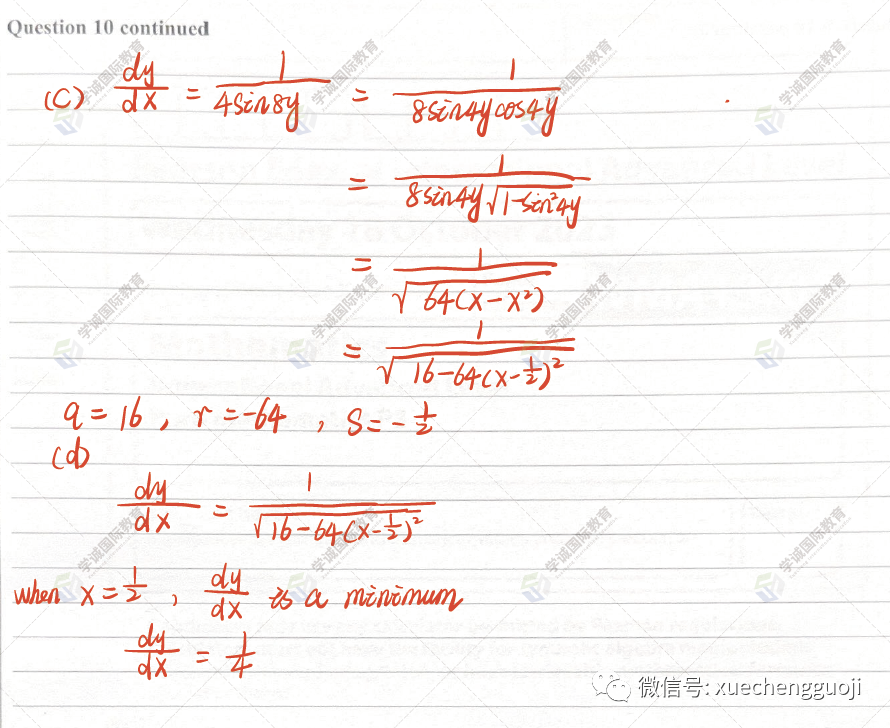 Question 10 continued
(C) dy/dx = 1/(4sin8y) = 1/(8sin4ycos4y)
= 1/(8sin4y√(1-sin²4y))
= 1/√(64(x-x²))
= 1/√(16-64(x-1/2)²)
q=16, r=-64, S=-1/2
(d)
dy/dx = 1/√(16-64(x-1/2)²)
when x=1/2, dy/dx is a minimum
dy/dx = 1/4
学诚国际教育
微信号: xuechengguoji